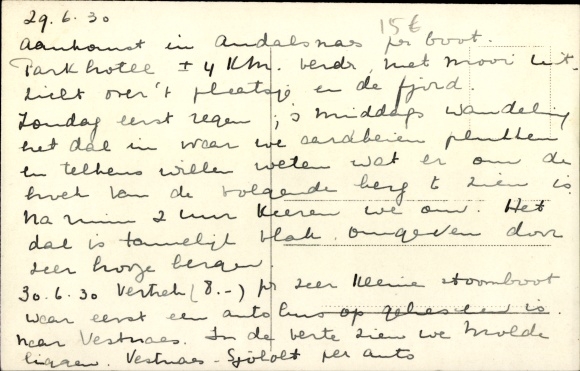 29.6.30
15€
Aankomst in Andalsnaes per boot.
Parkhotel ± 4 Km. verder, met mooi uit-
zicht over 't plaatsje en de fjord.
Zondag eerst regen, 's middags wandeling
het dal in waar we aardbeien plukken
en telkens willen weten wat er om de
hoek van de volgende berg te zien is.
Na ruim 2 uur keeren we om. Het
dal is tamelijk vlak omgeven door
zeer hooge bergen.
30.6.30 Vertrek (8.-) per zeer kleine stoomboot
waar eerst een autobus op geheschen is.
naar Vestnaes. In de verte zien we Molde
liggen. Vestnaes - Sjöholt per auto